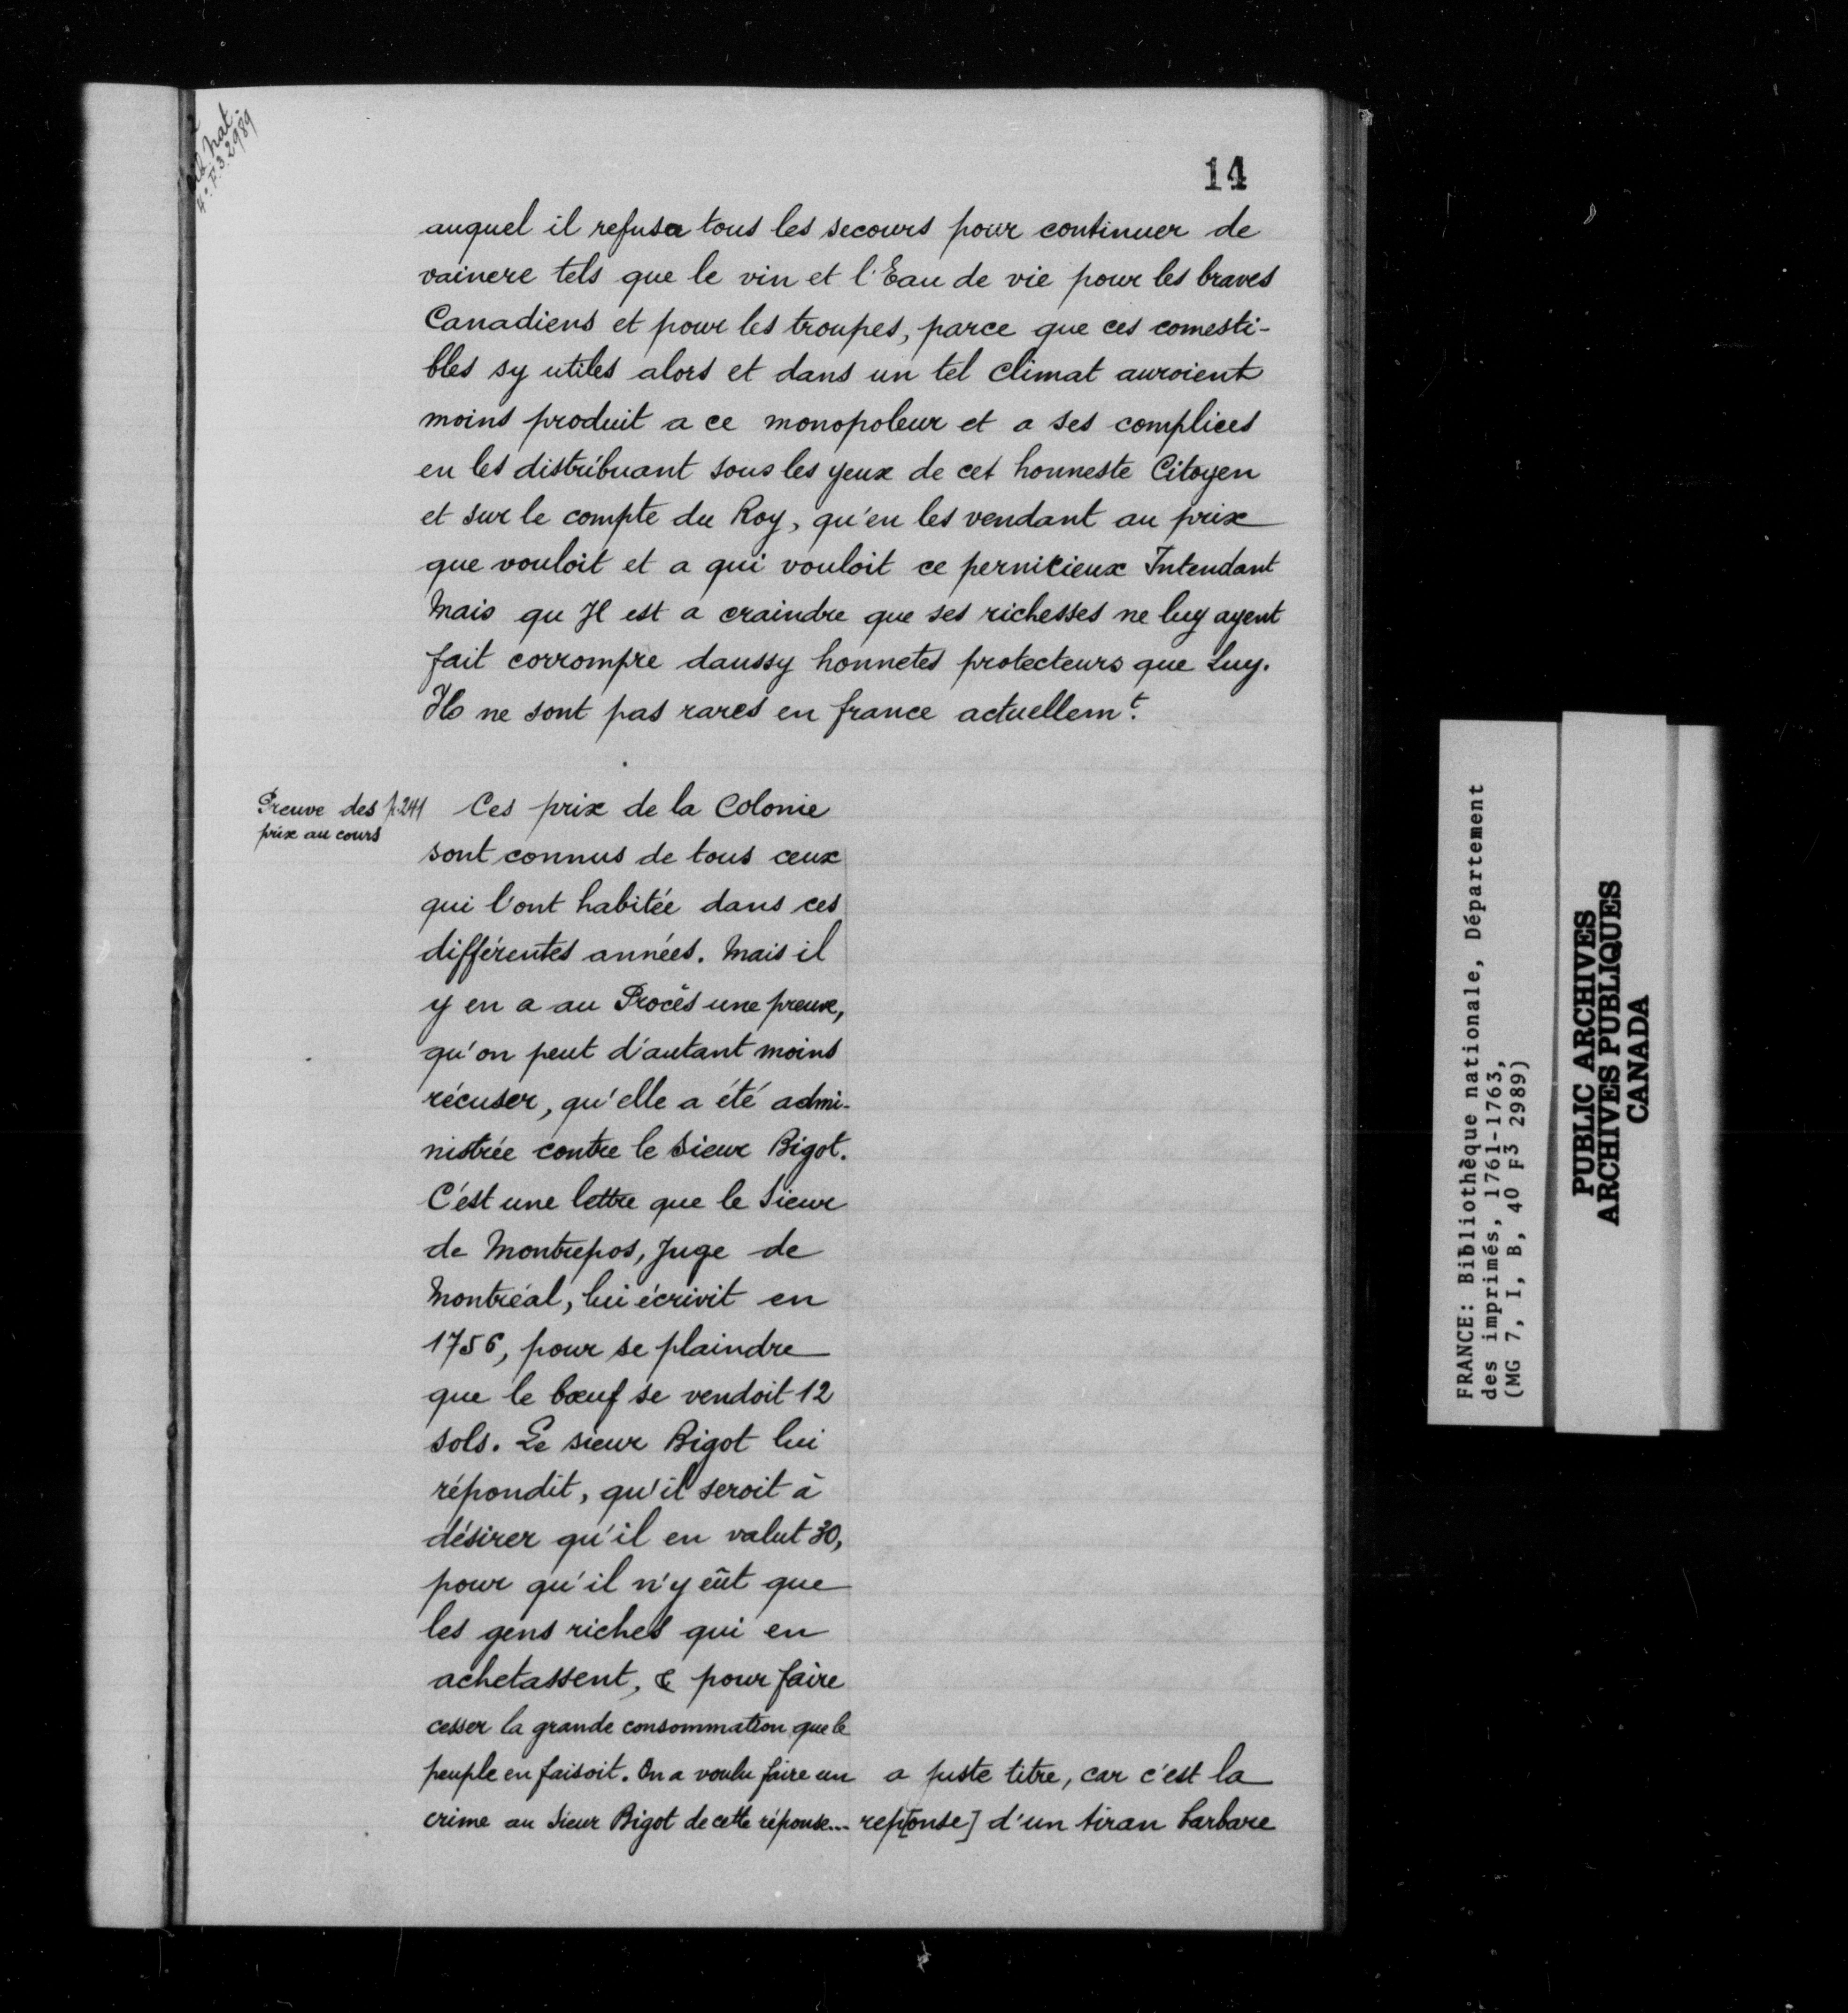 Bib. Nat.
4° F.3.2989
14
auquel il refusa tous les secours pour continuer de
vaincre tels que le vin et l'Eau de vie pour les braves
Canadiens et pour les troupes, parce que ces comesti-
bles sy utiles alors et dans un tel climat auroient
moins produit a ce monopoleur et a ses complices
en les distribuant sous les yeux de cet honneste Citoyen
et sur le compte du Roy, qu'en les vendant au prix
que vouloit et a qui vouloit ce pernicieux Intendant
Mais qu Il est a craindre que ses richesses ne luy ayent
fait corrompre daussy honnetes protecteurs que Luy.
Ils ne sont pas rares en france actuellemt.
Preuve des
prix au cours
p.241 Ces prix de la Colonie
sont connus de tous ceux
qui l'ont habitée dans ces
différentes années. Mais il
y en a au Procès une preuve,
qu'on peut d'autant moins
récuser, qu'elle a été admi-
nistrée contre le Sieur Bigot.
C'est une lettre que le Sieur
de Montrepos, Juge de
Montréal, lui écrivit en
1756, pour se plaindre
que le bœuf se vendoit 12
sols. Le sieur Bigot lui
répondit, qu'il seroit à
désirer qu'il en valut 30,
pour qu'il n'y eût que
les gens riches qui en
achetassent, & pour faire
cesser la grande consommation que le
peuple en faisoit. On a voulu faire un
crime au Sieur Bigot de cette réponse...
a juste titre, car c'est la
rep[onse] d'un tiran barbare
FRANCE: Bibliothèque nationale, Département
des imprimés, 1761-1763,
(MG 7, I, B, 40 F3 2989)
PUBLIC ARCHIVES
ARCHIVES PUBLIQUES
CANADA